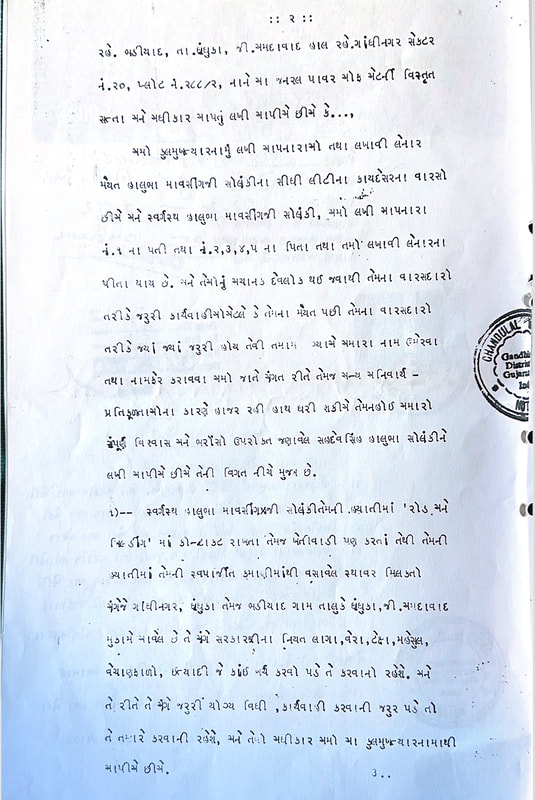 :: ૨ ::
રહે. ભડીયાદ, તા.ધંધુકા, જી.અમદાવાદ હાલ રહે.ગાંધીનગર સેકટર
નં.૨૦, પ્લોટ નં.૨૮૮/૨, નાને આ જનરલ પાવર ઓફ એટર્ની વિસ્તૃત
સત્તા અને અધીકાર આપતું લખી આપીએ છીએ કે...,
અમો કુલમુખત્યારનામું લખી આપનારાઓ તથા લખાવી લેનાર
મૈયત હાલુભા માવસીંગજી સોલંકીના સીધી લીટીના કાયદેસરના વારસો
છીએ અને સ્વર્ગસ્થ હાલુભા માવસીંગજી સોલંકી, અમો લખી આપનારા
નં.૧ ના પતી તથા નં.૨,૩,૪,૫ ના પિતા તથા તમો લખાવી લેનારના
પીતા થાય છે. અને તેઓનું અચાનક દેવલોક થઈ જવાથી તેમના વારસદારો
તરીકે જરુરી કાર્યવાહીઓએટલે કે તેમના મૈયત પછી તેમના વારસદારો
તરીકે જયાં જયાં જરુરી હોય તેવી તમામ જગ્યાએ અમારા નામ ઉમેરવા
તથા નામફેર કરાવવા અમો જાતે અંગત રીતે તેમજ અન્ય અનિવાર્ય -
પ્રતિકૂળતાઓના કારણે હાજર રહી હાથ ધરી શકીએ તેમનહોઈ અમારો
સંપૂર્ણ વિશ્વાસ અને ભરોંસો ઉપરોકત જણાવેલ સહદેવસિંહ હાલુભા સોલંકીને
લખી આપીએ છીએ તેની વિગત નીચે મુજબ છે.
૧)-- સ્વર્ગસ્થ હાલુભા માવસીંગજી સોલંકીતેમની હયાતીમાં 'રોડ અને
બિલ્ડીંગ' માં કોન્ટ્રાકટ રાખતા તેમજ ખેતીવાડી પણ કરતાં તેથી તેમની
હયાતીમાં તેમની સ્વપાર્જીત કમાણીમાંથી વસાવેલ સ્થાવર મિલકતો
અંગેજે ગાંધીનગર, ધંધુકા તેમજ ભડીયાદ ગામ તાલુકે ધંધુકા,જી.અમદાવાદ
મુકામે આવેલ છે તે અંગે સરકારશ્રીના નિયત લાગા,વેરા,ટેક્ષ,મહેસુલ,
વેચાણફાળો, ઈત્યાદી જે કાંઈ ખર્ચ કરવો પડે તે કરવાનો રહેશે. અને
તે રીતે તે અંગે જરુરી યોગ્ય વિધી ,કાર્યવાહી કરવાની જરુર પડે તો
તે તમારે કરવાની રહેશે, અને તેવો અધીકાર અમો આ કુલમુખત્યારનામાથી
આપીએ છીએ.
3..
CHANDULAL
Gandhi
District
Gujarat
Ind
NOT